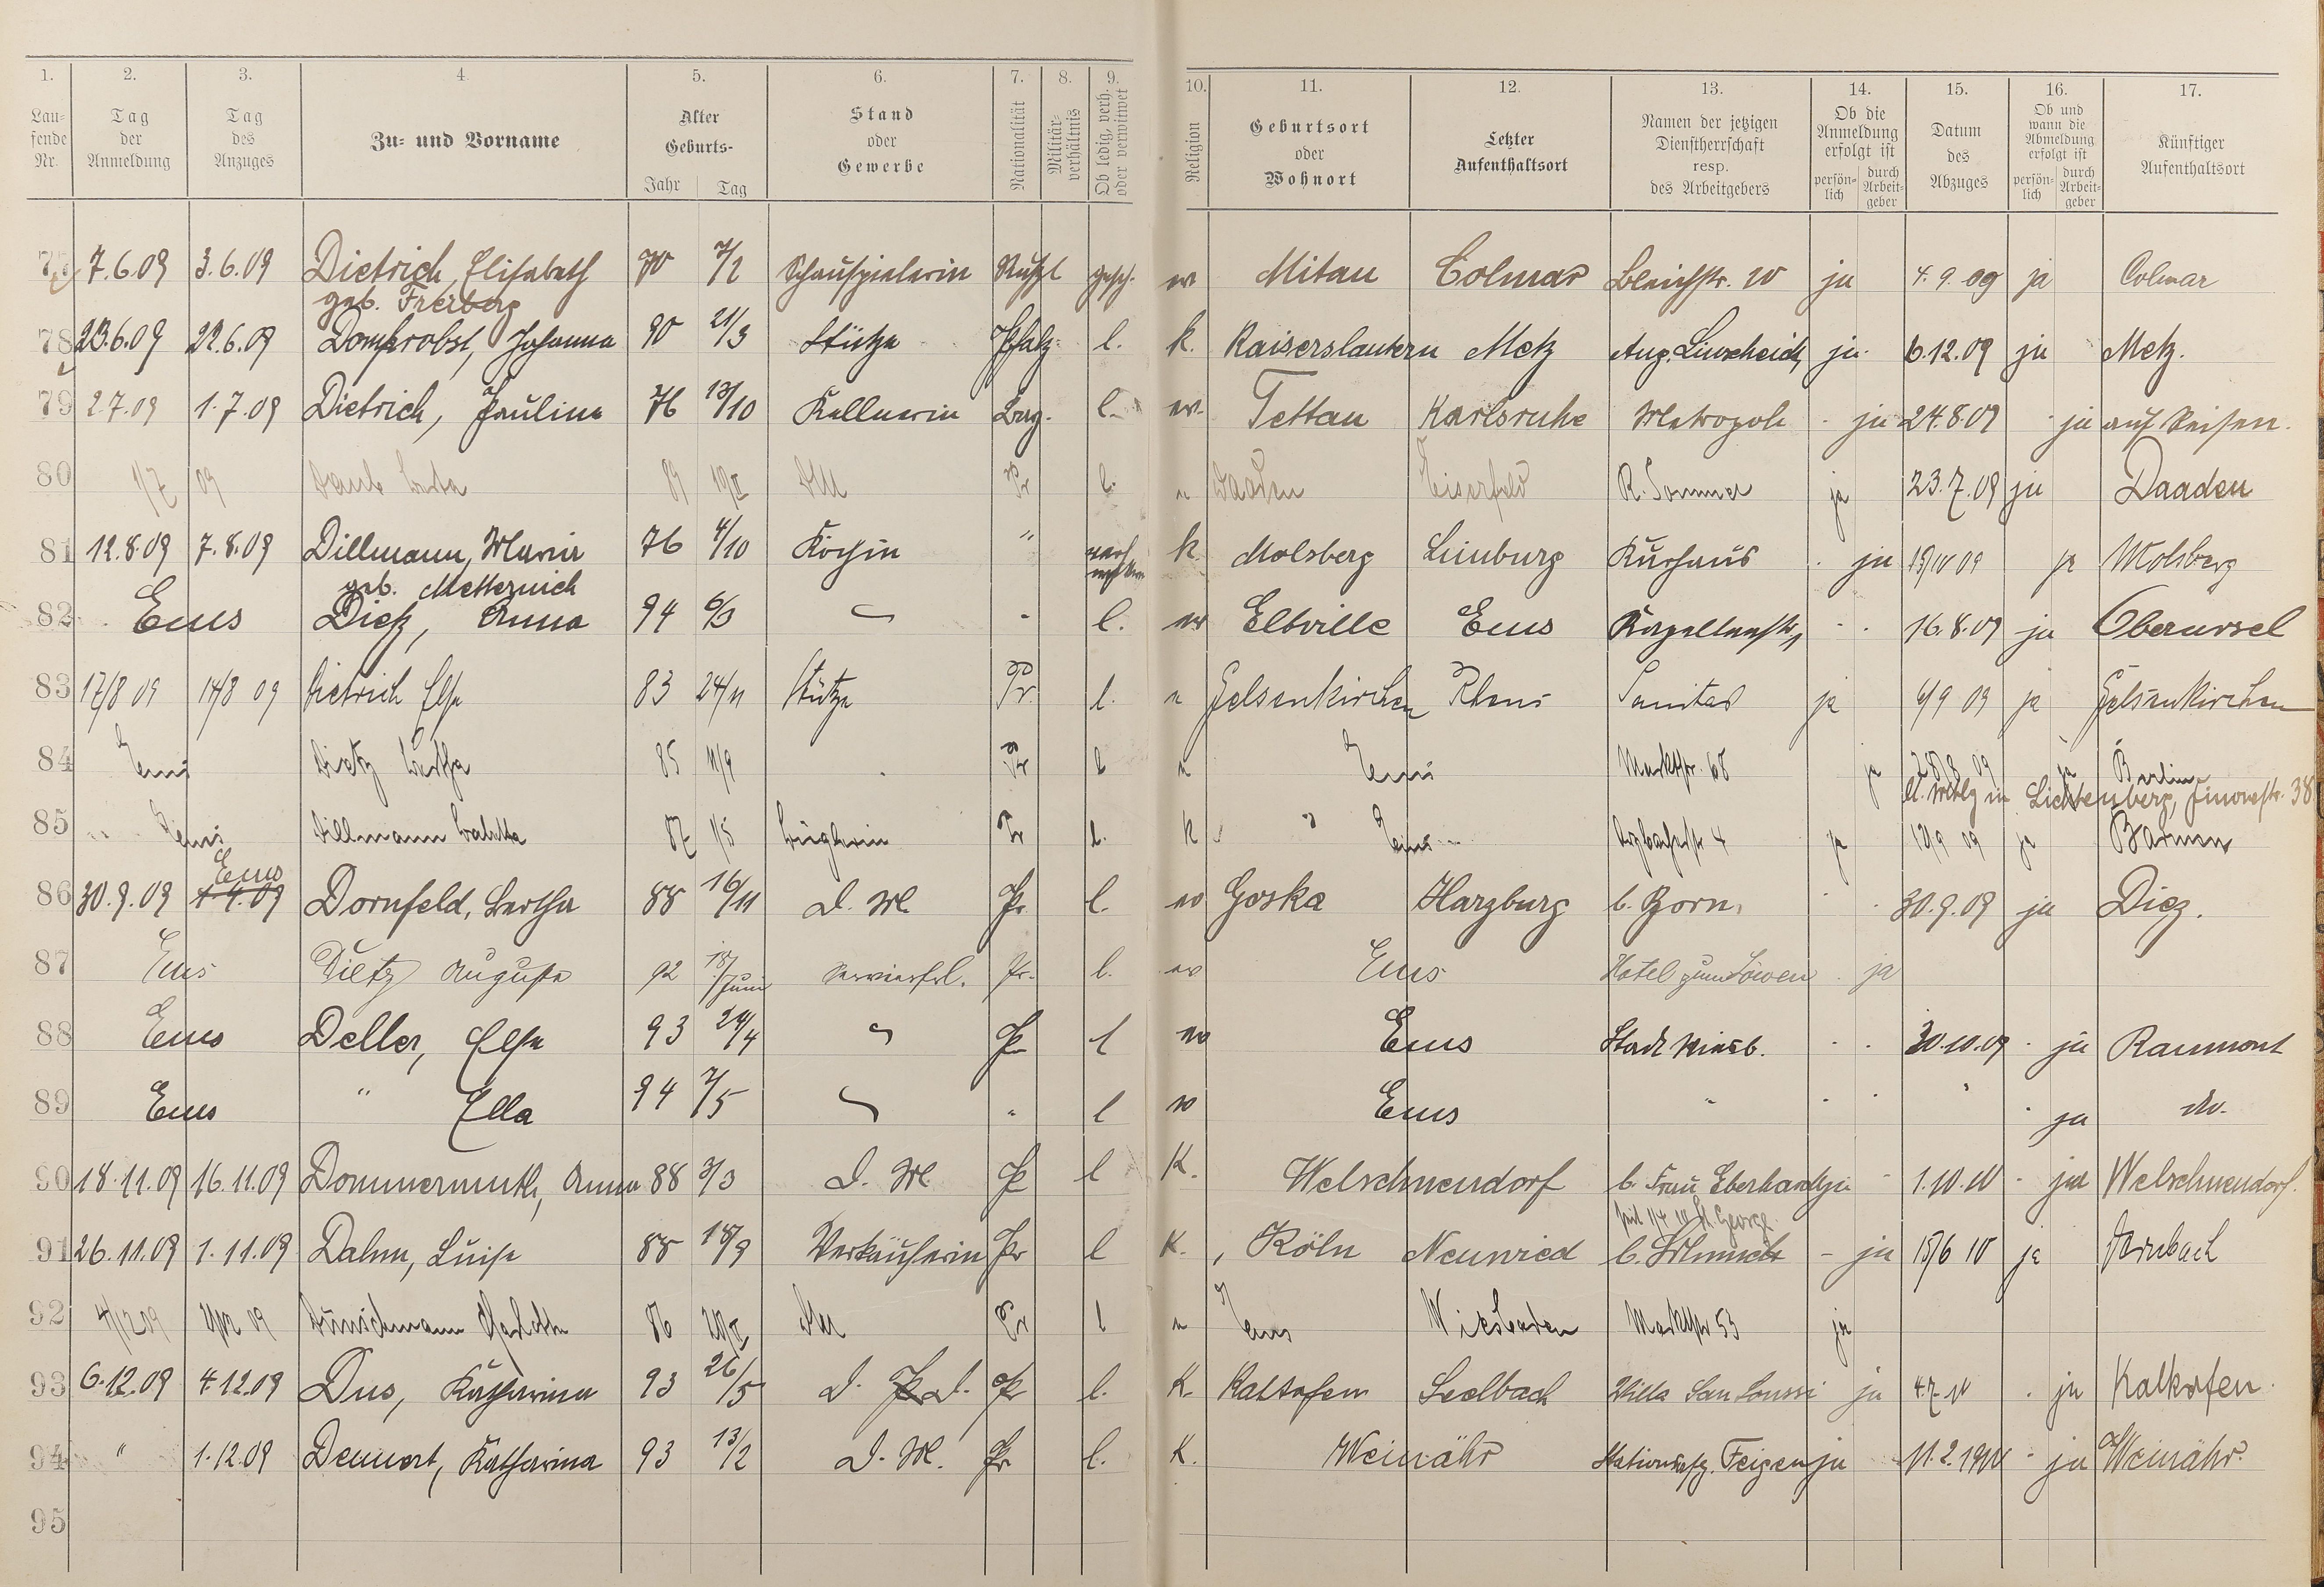 1. 2. 3. 4. 5. 6. 7. 8. 9. 10. 11. 12. 13. 14. 15. 16. 17.
Laufende Nr. Tag der Anmeldung Tag des Anzuges Zu- und Vorname Alter Geburts- Jahr Tag Stand oder Gewerbe Nationalität Militärverhältnis Ob ledig, verh. oder verwitwet Religion Geburtsort oder Wohnort Letzter Aufenthaltsort Namen der jetzigen Dienstherrschaft resp. des Arbeitgebers Ob die Anmeldung erfolgt ist persönlich durch Arbeitgeber Datum des Abzuges Ob und wann die Abmeldung erfolgt ist persönlich durch Arbeitgeber Künftiger Aufenthaltsort
77 7.6.09 3.6.09 Dietrich Elisabeth 70 7/2 Schauspielerin Rußl gesch. ev Mitau Colmar Bleichstr. 10 ja 4.9.09 ja Colmar
geb. Freiberg
78 23.6.09 22.6.09 Domprobst, Johanna 90 21/3 Stütze Pfalz l. k. Kaiserslautern Metz Aug. Linscheid ja 6.12.09 ja Metz.
79 2.7.09 1.7.09 Dietrich, Pauline 76 13/10 Kellnerin Bay. l. ev. Tettau Karlsruhe Metropole ja 24.8.09 ja auf Reisen.
80 1/7 09 Daub 89 DM Pr l. Daaden Eiserfeld R. Sommer ja 23.7.09 ja Daaden
81 12.8.09 7.8.09 Dillmann, Maria 76 4/10 Köchin " k Molsberg Limburg Kurhaus ja 09 ja Molsberg
geb. Metternich
82 Ems Dietz, Anna 94 6/3 l. ev Eltville Ems Kapellenstr. 16.8.09 ja Oberursel
83 17/8 09 14/8 09 Dietrich Else 83 24/11 Stütze Pr. l. Gelsenkirchen Rhens Sanitas ja 6/9 09 ja Gelsenkirchen
84 Ems Dietz Bertha 85 11/9 Pr l Ems Marktstr. 68 ja 09 ja Berlin
Lichtenberg, 38
85 Ems Dillmann Babette 87 1/5 Büglerin Pr l. k Ems 4 ja 09 ja Barmen
Ems
86 30.9.09 1.4.09 Dornfeld, Bertha 88 16/11 D. M. Pr l. ev Goska Harzburg b. Born 30.9.09 ja Diez.
87 Ems Dietz Auguste 92 18/Juni Servierfrl. Pr. l. ev Ems Hotel zum Löwen ja
88 Ems Deller, Else 93 24/4 Pr l ev Ems Stadt Wiesb. 30.10.09 ja Raumont
89 Ems " Ella 94 7/5 " l ev Ems " " ja do.
90 18.11.09 16.11.09 Dommermuth, Anna 88 3/3 D. M. Pr l K. Welschneudorf b. Frau Eberhardt ja 1.10.10 ja Welschneudorf.
George
91 26.11.09 1.11.09 Dahm, Luise 88 18/9 Verkäuferin Pr l K. Köln Neuwied ja 15/6 10 ja Dernbach
92 4/12 09 09 86 DM Pr l Ems Wiesbaden Marktstr 53 ja
93 6.12.09 4.12.09 Dus, Katharina 93 26/5 D. Pr l. K. Kalkofen Seelbach Villa San Soussi ja 4.7.10 ja Kalkofen.
94 " 1.12.09 Dennert, Katharina 93 13/2 D. M. Pr l. K. Weinähr Feigen ja 11.2.1910 ja Weinähr.
95